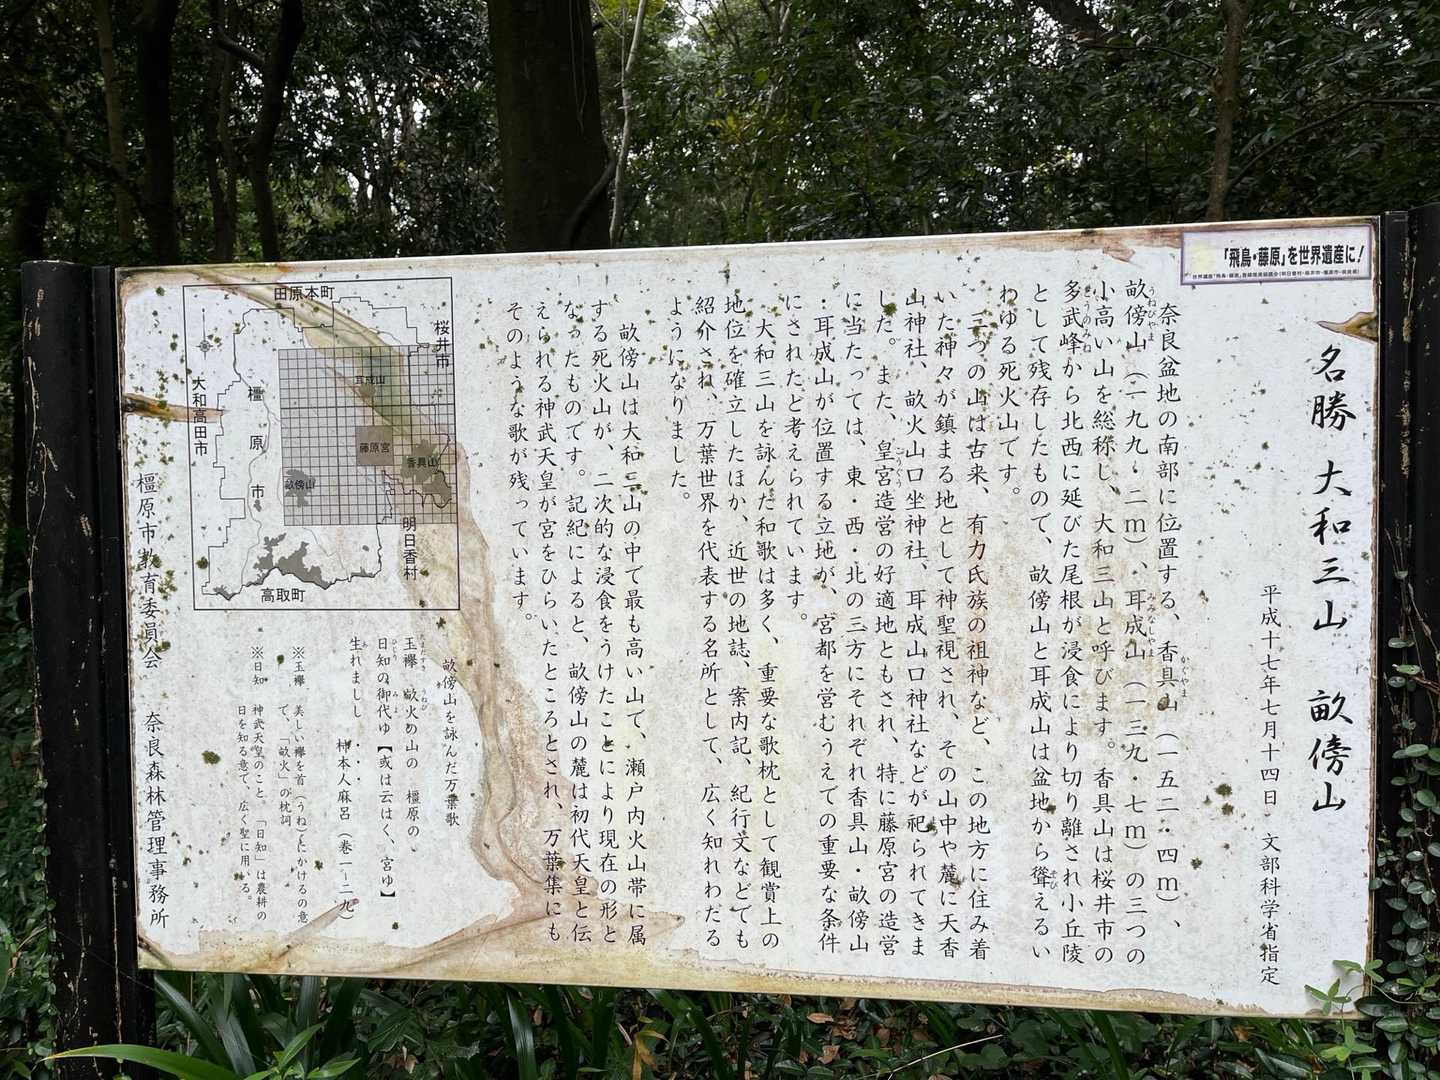 「飛鳥・藤原」を世界遺産に!
名勝 大和三山 畝傍山
平成十七年七月十四日 文部科学省指定
奈良盆地の南部に位置する、香具山(一五二・四m)、
畝傍山(一九九・二m)、耳成山(一三九・七m)の三つの
小高い山を総称し、大和三山と呼びます。香具山は桜井市の
多武峰から北西に延びた尾根が浸食により切り離され小丘陵
として残存したもので、畝傍山と耳成山は盆地から聳えるい
わゆる死火山です。
三つの山は古来、有力氏族の祖神など、この地方に住み着
いた神々が鎮まる地として神聖視され、その山中や麓に天香
山神社、畝火山口坐神社、耳成山口神社などが祀られてきま
した。また、皇宮造営の好適地ともされ、特に藤原宮の造営
に当たっては、東・西・北の三方にそれぞれ香具山・畝傍山
・耳成山が位置する立地が、宮都を営むうえでの重要な条件
にされたと考えられています。
大和三山を詠んだ和歌は多く、重要な歌枕として観賞上の
地位を確立したほか、近世の地誌、案内記、紀行文などでも
紹介され、万葉世界を代表する名所として、広く知れわたる
ようになりました。
畝傍山は大和三山の中で最も高い山で、瀬戸内火山帯に属
する死火山が、二次的な浸食をうけたことにより現在の形と
なったものです。記紀によると、畝傍山の麓は初代天皇と伝
えられる神武天皇が宮をひらいたところとされ、万葉集にも
そのような歌が残っています。
田原本町
桜井市
大和高田市
橿原市
耳成山
藤原宮
香具山
畝傍山
明日香村
高取町
畝傍山を詠んだ万葉歌
玉襷 畝火の山の 橿原の
日知の御代ゆ【或は云はく、宮ゆ】
生れましし ・・・
柿本人麻呂(巻一-二九)
※玉襷 美しい襷を首(うね)にかけるの意
で、「畝火」の枕詞
※日知 神武天皇のこと。「日知」は農耕の
日を知る意で、広く聖に用いる。
橿原市教育委員会 奈良森林管理事務所